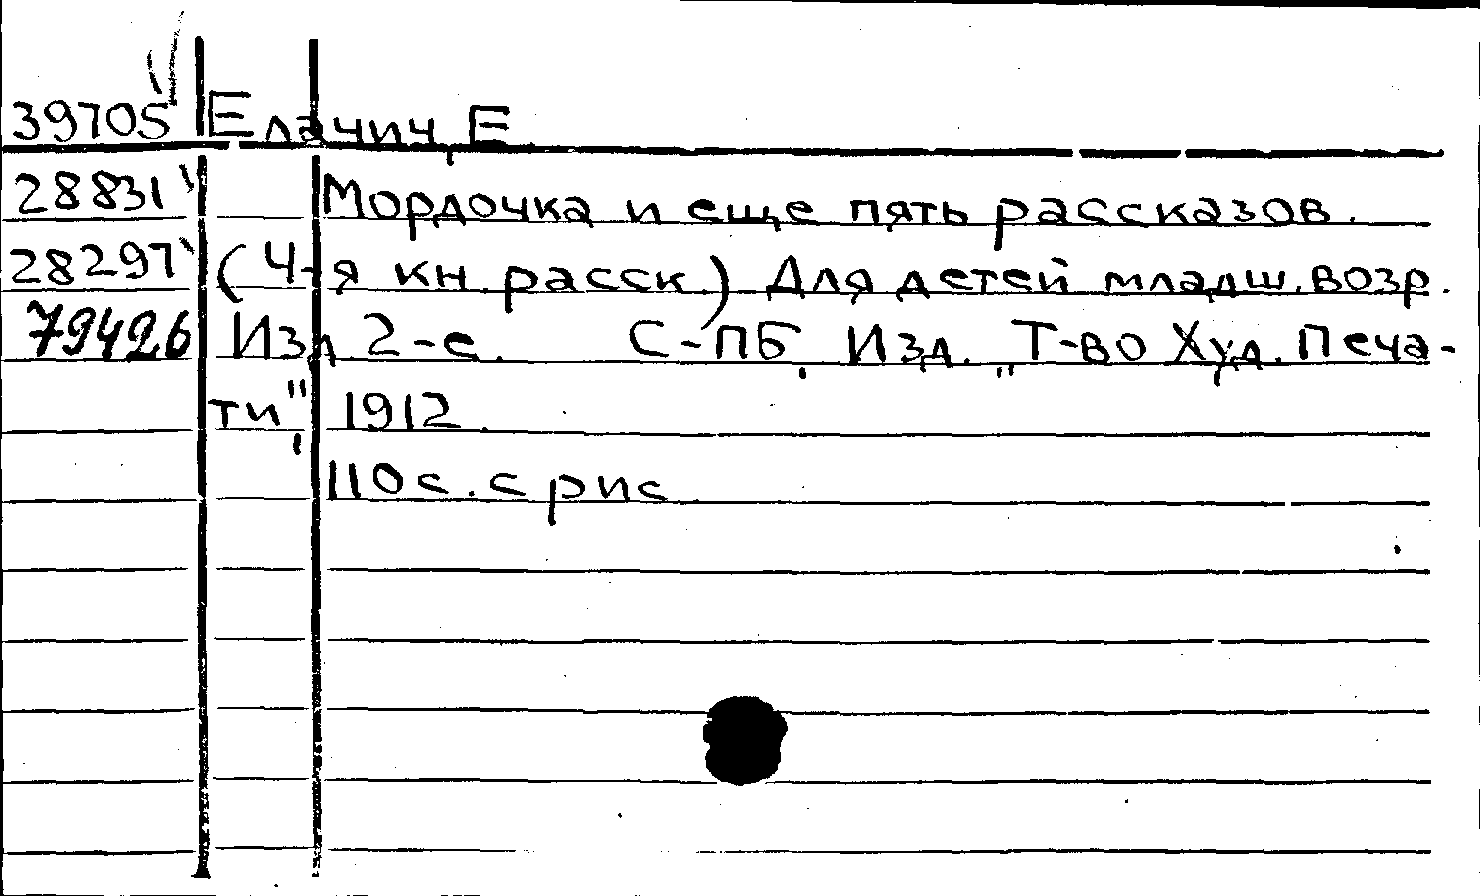 39705 Елачич, Е.
28831 Мордочка и еще пять рассказов.
28297 (4-я кн. расск.) Для детей младш. возр.
79426 Изд. 2-е. С-ПБ, Изд. "Т-во Худ. Печа-
ти", 1912.
110 с. с рис.